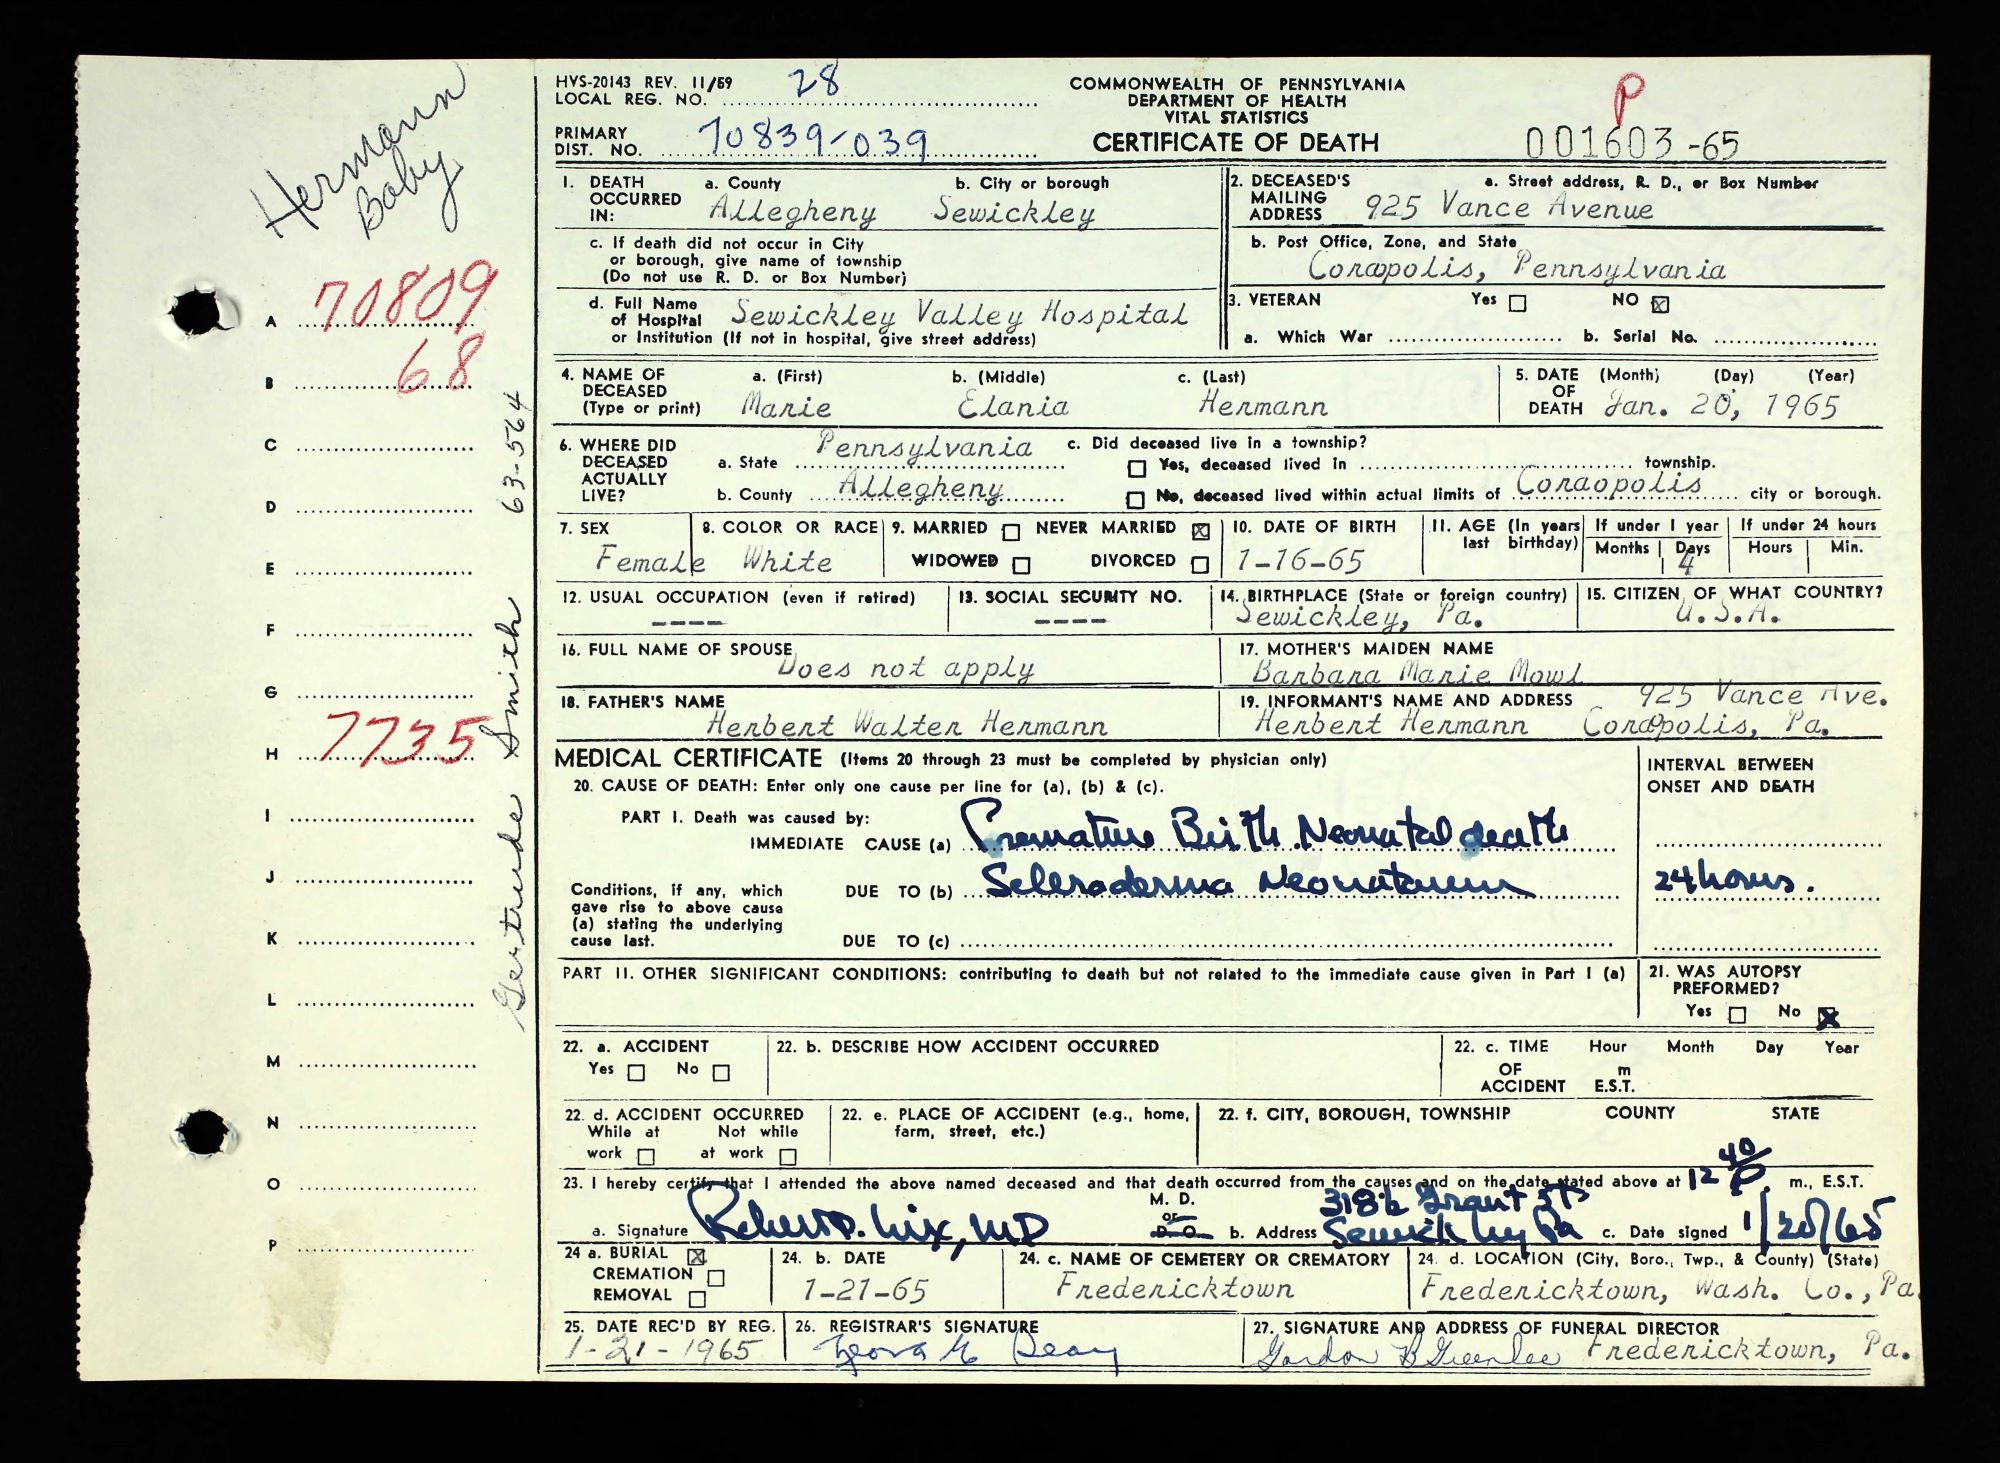 Hermann
Baby
A 70809
B 68
C
D
E
F
G
H 7735
I
J
K
L
M
N
O
P
Gertrude Smith 63-564
HVS-20143 REV. 11/59
LOCAL REG. NO. 28
PRIMARY
DIST. NO. 70839-039
COMMONWEALTH OF PENNSYLVANIA
DEPARTMENT OF HEALTH
VITAL STATISTICS
CERTIFICATE OF DEATH
P
001603-65
1. DEATH OCCURRED IN: a. County b. City or borough
Allegheny Sewickley
c. If death did not occur in City
or borough, give name of township
(Do not use R. D. or Box Number)
d. Full Name
of Hospital Sewickley Valley Hospital
or Institution (If not in hospital, give street address)
2. DECEASED'S MAILING ADDRESS a. Street address, R. D., or Box Number
925 Vance Avenue
b. Post Office, Zone, and State
Coraopolis, Pennsylvania
3. VETERAN Yes NO
a. Which War b. Serial No.
4. NAME OF DECEASED (Type or print) a. (First) b. (Middle) c. (Last)
Marie Elania Hermann
5. DATE OF DEATH (Month) (Day) (Year)
Jan. 20, 1965
6. WHERE DID DECEASED ACTUALLY LIVE?
a. State Pennsylvania
b. County Allegheny
c. Did deceased live in a township?
Yes, deceased lived in township.
No, deceased lived within actual limits of Coraopolis city or borough.
7. SEX
Female
8. COLOR OR RACE
White
9. MARRIED NEVER MARRIED
WIDOWED DIVORCED
10. DATE OF BIRTH
1-16-65
11. AGE (In years last birthday)
If under 1 year
Months Days
4
If under 24 hours
Hours Min.
12. USUAL OCCUPATION (even if retired)
----
13. SOCIAL SECURITY NO.
----
14. BIRTHPLACE (State or foreign country)
Sewickley, Pa.
15. CITIZEN OF WHAT COUNTRY?
U.S.A.
16. FULL NAME OF SPOUSE
Does not apply
17. MOTHER'S MAIDEN NAME
Barbara Marie Mowl
18. FATHER'S NAME
Herbert Walter Hermann
19. INFORMANT'S NAME AND ADDRESS 925 Vance Ave.
Herbert Hermann Coraopolis, Pa.
MEDICAL CERTIFICATE (Items 20 through 23 must be completed by physician only)
20. CAUSE OF DEATH: Enter only one cause per line for (a), (b) & (c).
INTERVAL BETWEEN
ONSET AND DEATH
PART I. Death was caused by:
IMMEDIATE CAUSE (a) Premature Birth Neonatal death
Conditions, if any, which
gave rise to above cause
(a) stating the underlying
cause last.
DUE TO (b) Scleroderma Neonatorum 24 hours.
DUE TO (c)
PART II. OTHER SIGNIFICANT CONDITIONS: contributing to death but not related to the immediate cause given in Part I (a)
21. WAS AUTOPSY
PREFORMED?
Yes No
22. a. ACCIDENT
Yes No
22. b. DESCRIBE HOW ACCIDENT OCCURRED
22. c. TIME Hour Month Day Year
OF m
ACCIDENT E.S.T.
22. d. ACCIDENT OCCURRED
While at Not while
work at work
22. e. PLACE OF ACCIDENT (e.g., home,
farm, street, etc.)
22. f. CITY, BOROUGH, TOWNSHIP COUNTY STATE
23. I hereby certify that I attended the above named deceased and that death occurred from the causes and on the date stated above at 12 40 P m., E.S.T.
a. Signature Robert D. Nix, MD
M. D.
or
D. O.
b. Address Grant St
Sewickley Pa
c. Date signed 1/20/65
24 a. BURIAL
CREMATION
REMOVAL
24. b. DATE
1-21-65
24. c. NAME OF CEMETERY OR CREMATORY
Fredericktown
24. d. LOCATION (City, Boro., Twp., & County) (State)
Fredericktown, Wash. Co., Pa.
25. DATE REC'D BY REG.
1-21-1965
26. REGISTRAR'S SIGNATURE
27. SIGNATURE AND ADDRESS OF FUNERAL DIRECTOR
Gordon B Greenlee Fredericktown, Pa.